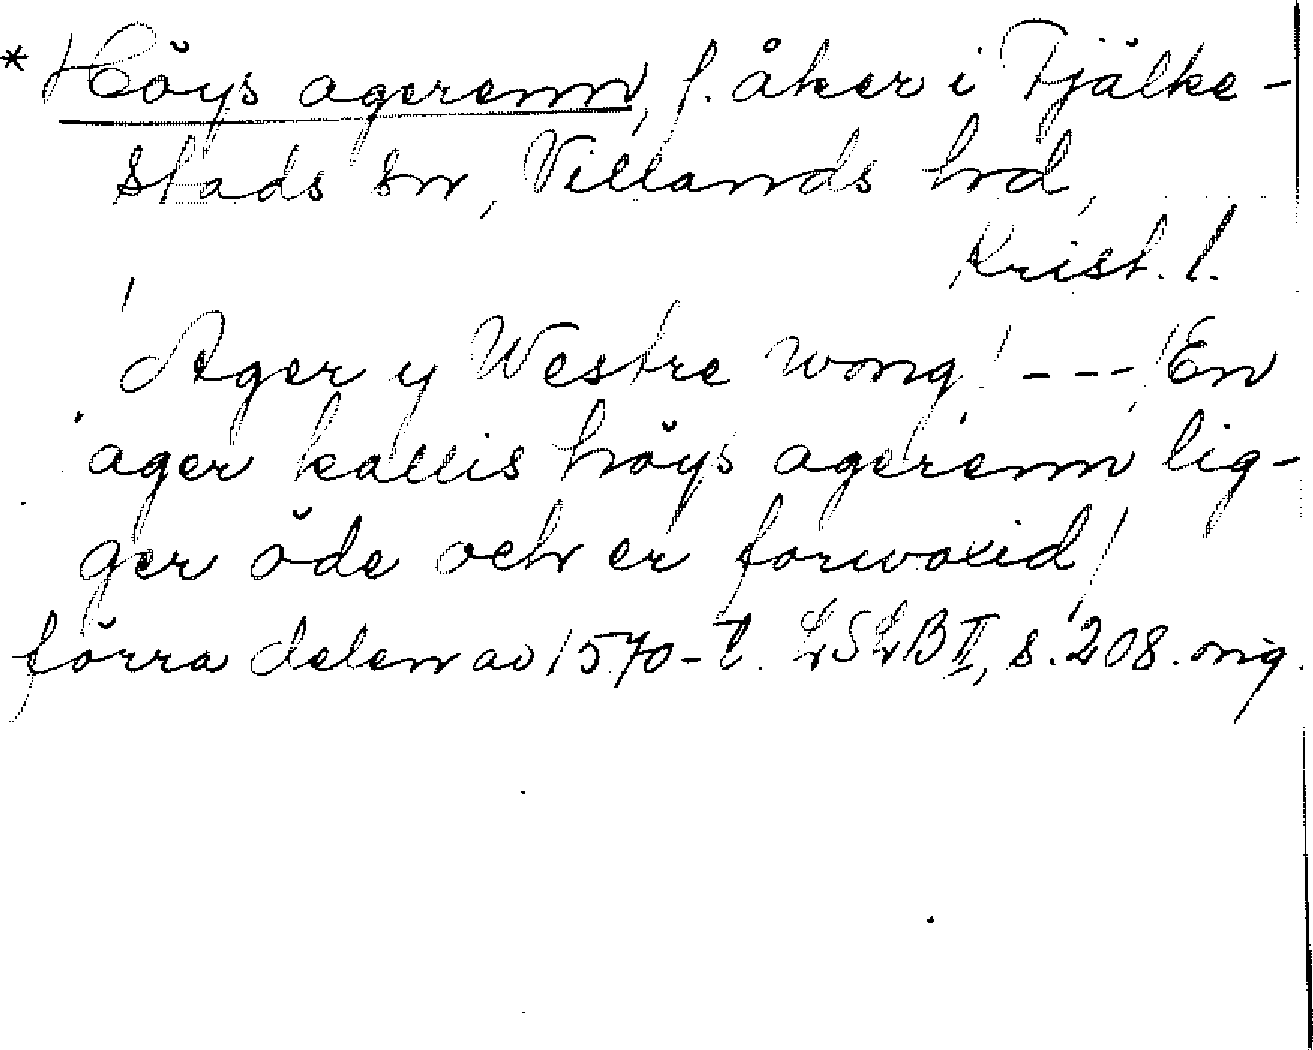 * Höys agerenn, f. åker i Fjälke-
stads sn, Villands hd,
Krist. l.
'Ager y Westre wong' --- 'En
ager kallis höys agerenn lig-
ger öde och er forwoxid'
förra delen av 1570-t. LSLB II, s. 208. orig.